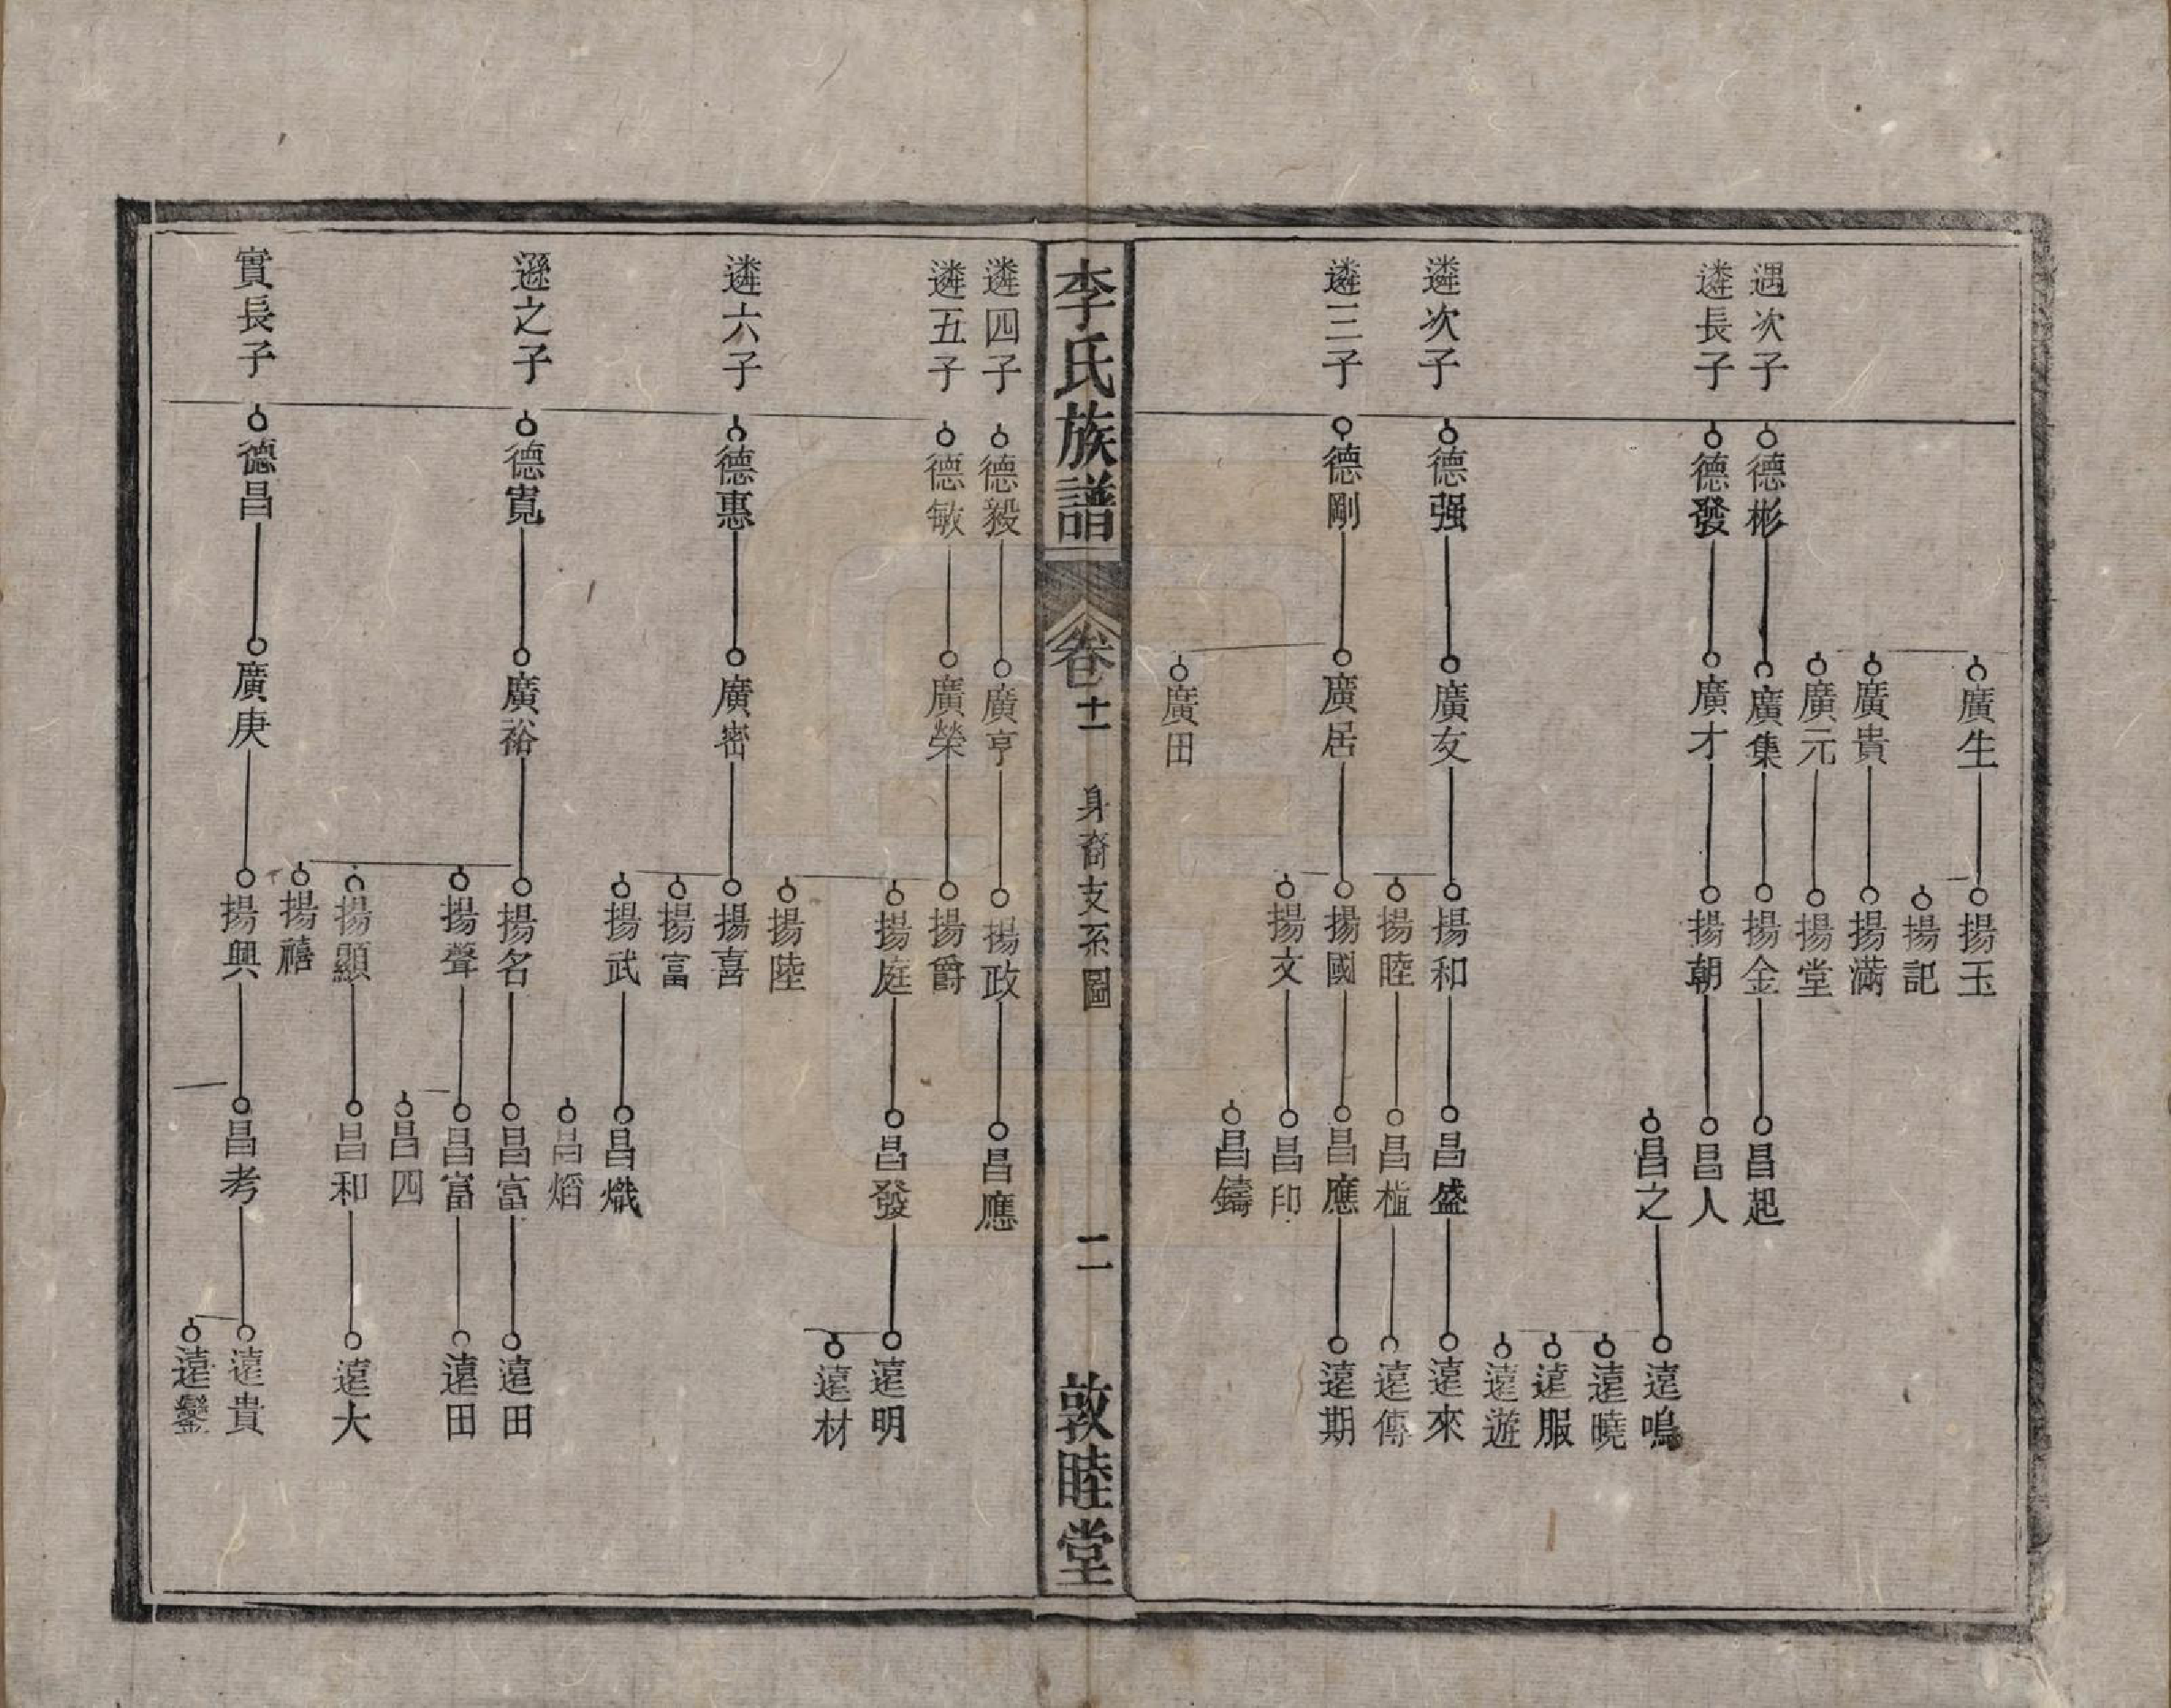 廣生
揚玉
揚記
廣貴
揚滿
廣元
揚堂
遇次子
德彬
廣集
揚金
昌起
遴長子
德發
廣才
揚朝
昌人
昌之
遠鳴
遠曉
遠服
遠遊
遴次子
德强
廣友
揚和
昌盛
遠來
揚睦
昌植
遠傳
遴三子
德剛
廣居
揚國
昌應
遠期
揚文
昌印
昌鑄
廣田
李氏族譜
卷十一
身裔支系圖
二
敦睦堂
遴四子
德毅
廣亨
揚政
昌應
遴五子
德敏
廣榮
揚爵
揚庭
昌發
遠明
遠材
揚陸
遴六子
德惠
廣密
揚喜
揚富
揚武
昌熾
昌熖
遜之子
德寬
廣裕
揚名
昌富
遠田
揚聲
昌富
遠田
昌四
揚顯
昌和
遠大
揚禧
實長子
德昌
廣庚
揚興
昌考
遠貴
遠鑾